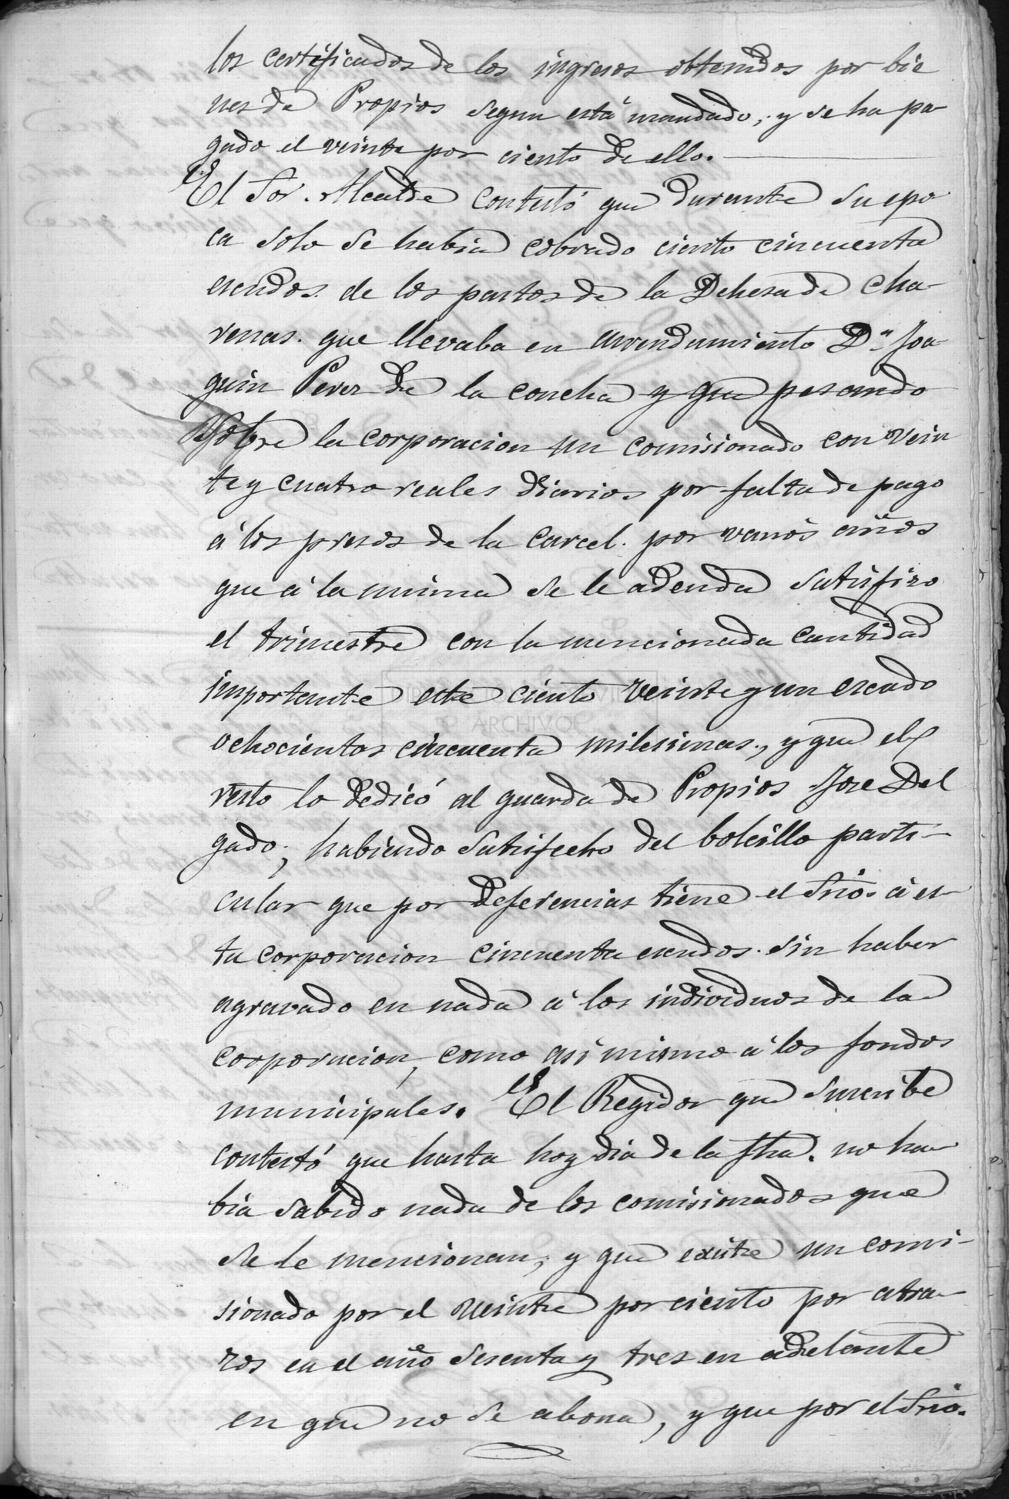 los certificados de los ingresos obtenidos por bie
nes de Propios segun está mandado, y se ha pa-
gado el veinte por ciento de ello.
El Sor. Alcalde contestó que durante su epo
ca solo se habia cobrado ciento cincuenta
escudos de los pastos de la Dehesa de Cha-
verras que llevaba en arrendamiento Dn. Joa-
quin Perez de la concha y que pesando
sobre la corporacion un comisionado con vein
te y cuatro reales diarios por falta de pago
á los presos de la carcel por varios años
que á la misma se le adeuda satisfizo
el trimestre con la mencionada cantidad
importante este ciento veinte y un escudo
ochocientas cincuenta milesimas, y que el
resto lo dedicó al guarda de Propios Jose Del
gado, habiendo satisfecho del bolsillo parti-
cular que por deferencias tiene el Srio. á es-
ta corporacion cincuenta escudos sin haber
agravado en nada á los individuos de la
corporacion, como asi mismo á los fondos
municipales. El Regidor que suscribe
contestó que hasta hoy dia de la fha. no ha-
bia sabido nada de los comisionados que
se le mencionan, y que existe un comi-
sionado por el veinte por ciento por atra-
zos en el año sesenta y tres en adelante
en que no se abona, y que por el Srio.
ARCHIVO